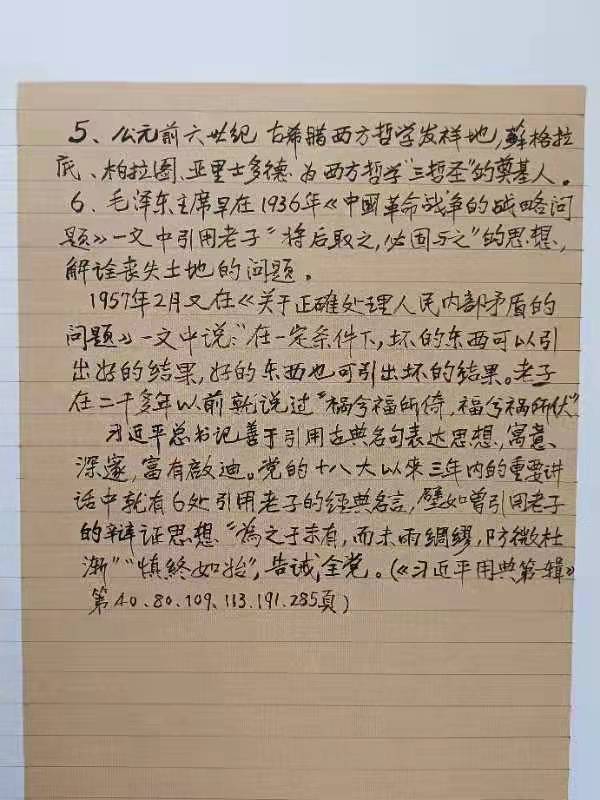 5、公元前六世纪 古希腊西方哲学发祥地,蘇格拉
底、柏拉图、亚里士多德为西方哲学"三哲圣"的奠基人。
6、毛泽东主席早在1936年《中國革命战争的战略问
题》一文中引用老子"将后取之,必固与之"的思想,
解诠丧失土地的问题。
1957年2月又在《关于正确处理人民内部矛盾的
问题》一文中说:"在一定条件下,坏的东西可以引
出好的结果,好的东西也可引出坏的结果。老子
在二千多年以前就说过"祸兮福所倚,福兮祸所伏"
习近平总书记善于引用古典名句表达思想,寓意、
深邃,富有啟迪。党的十八大以来三年内的重要讲
话中就有6处引用老子的经典名言,譬如曾引用老子
的辩证思想"為之于未有,而未雨綢繆,防微杜
渐""慎終如始",告诫全党。(《习近平用典第一辑》
第40、80、109、113、191、285頁)